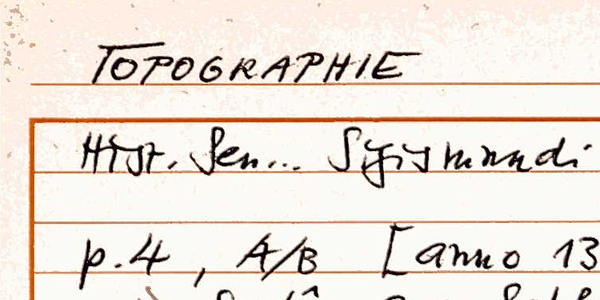 TOPOGRAPHIE
Hist. Sen... Sigismundi
p.4, A/B [anno 13